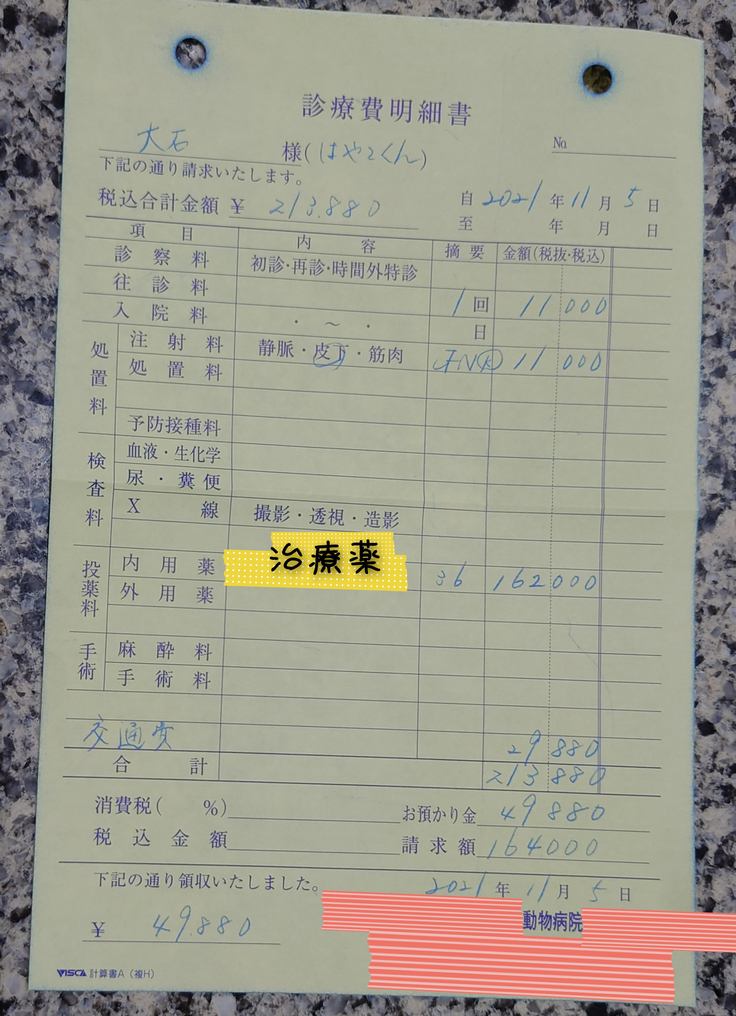 診療費明細書
大石 様(はやてくん) No.
下記の通り請求いたします。
税込合計金額 ¥ 213.880
自 2021 年 11 月 5 日
至 年 月 日
項目 内容 摘要 金額(税抜・税込)
診察料 初診・再診・時間外特診
往診料 1 回 11 000
入院料 ・ 〜 ・ 日
処置料 注射料 静脈・皮下・筋肉
処置料 11 000
予防接種料
検査料 血液・生化学
尿・糞便
X線 撮影・透視・造影
治療薬
投薬料 内用薬 36 162000
外用薬
手術 麻酔料
手術料
交通費 29 880
合計 213 880
消費税( %) お預かり金 49880
税込金額 請求額 164000
下記の通り領収いたしました。 2021 年 11 月 5 日
¥ 49.880
動物病院
VISCA 計算書A(複H)